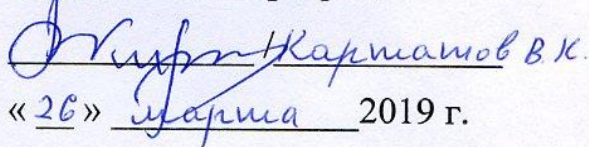 /Карташов В.К.
«26» марта 2019 г.